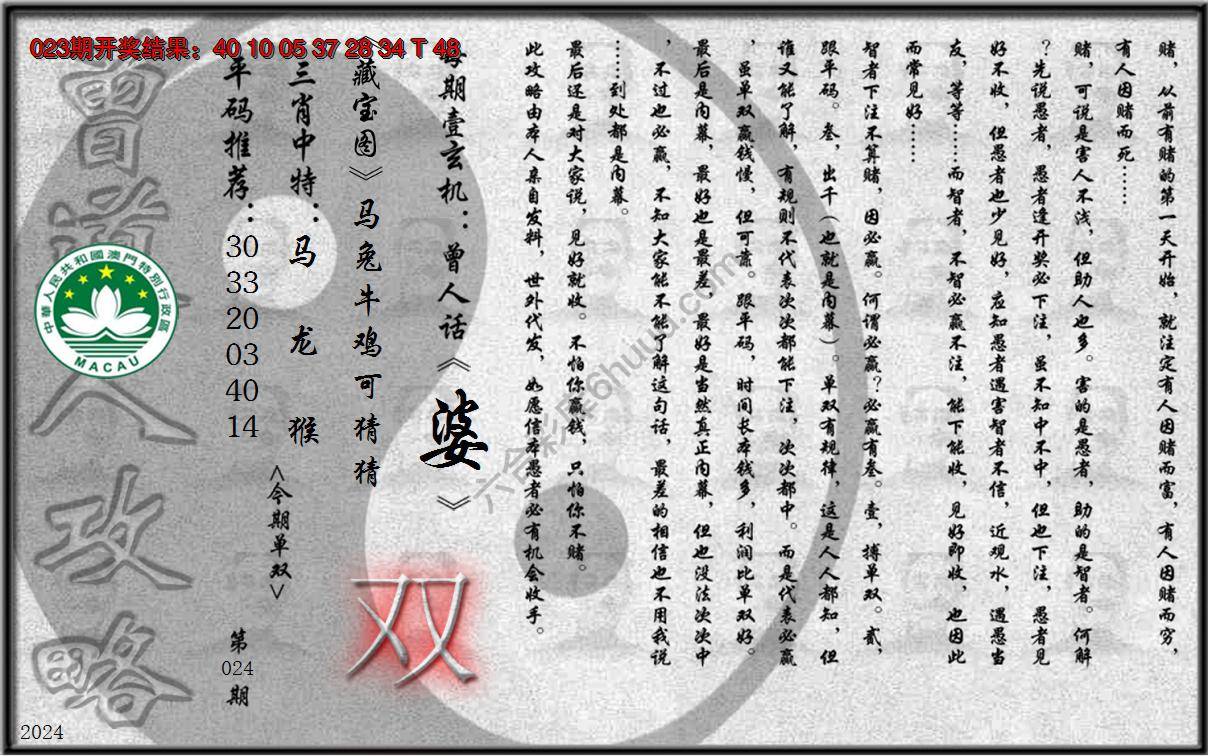 023期开奖结果：40 10 05 37 28 34 T 48
赌，从前有赌的第一天开始，就注定有人因赌而富，有人因赌而穷，
有人因赌而死……
赌，可说是害人不浅，但助人也多。害的是愚者，助的是智者。何解
？先说愚者，愚者逢开奖必下注，虽不知中不中，但也下注，愚者见
好不收，但愚者也少见好，应知愚者遇害智者不信，近观水，遇愚当
友，等等……而智者，不智必赢不注，能下能收，见好即收，也因此
而常见好……
智者下注不算赌，因必赢。何谓必赢？必赢有叁。壹，搏单双。贰，
跟平码。叁，出千（也就是内幕）。单双有规律，这是人人都知，但
谁又能了解，有规则不代表次次都能下注，次次都中。而是代表必赢
，虽单双赢钱慢，但可靠。跟平码，时间长本钱多，利润比单双好。
最后是内幕，最好也是最差，最好是当然真正内幕，但也没法次次中
，不过也必赢，不知大家能不能了解这句话，最差的相信也不用我说
……到处都是内幕。
最后还是对大家说，见好就收。不怕你赢钱，只怕你不赌。
此攻略由本人亲自发料，世外代发，如愿信本愚者必有机会收手。
每期壹玄机：曾人话《婆》
《藏宝图》马兔牛鸡可猜猜
三肖中特：马 龙 猴
<今期单双>
双
平码推荐：30 33 20 03 40 14
第024期
曾道人攻略
中華人民共和國澳門特別行政區
MACAU
2024
六合彩库6huuu.com